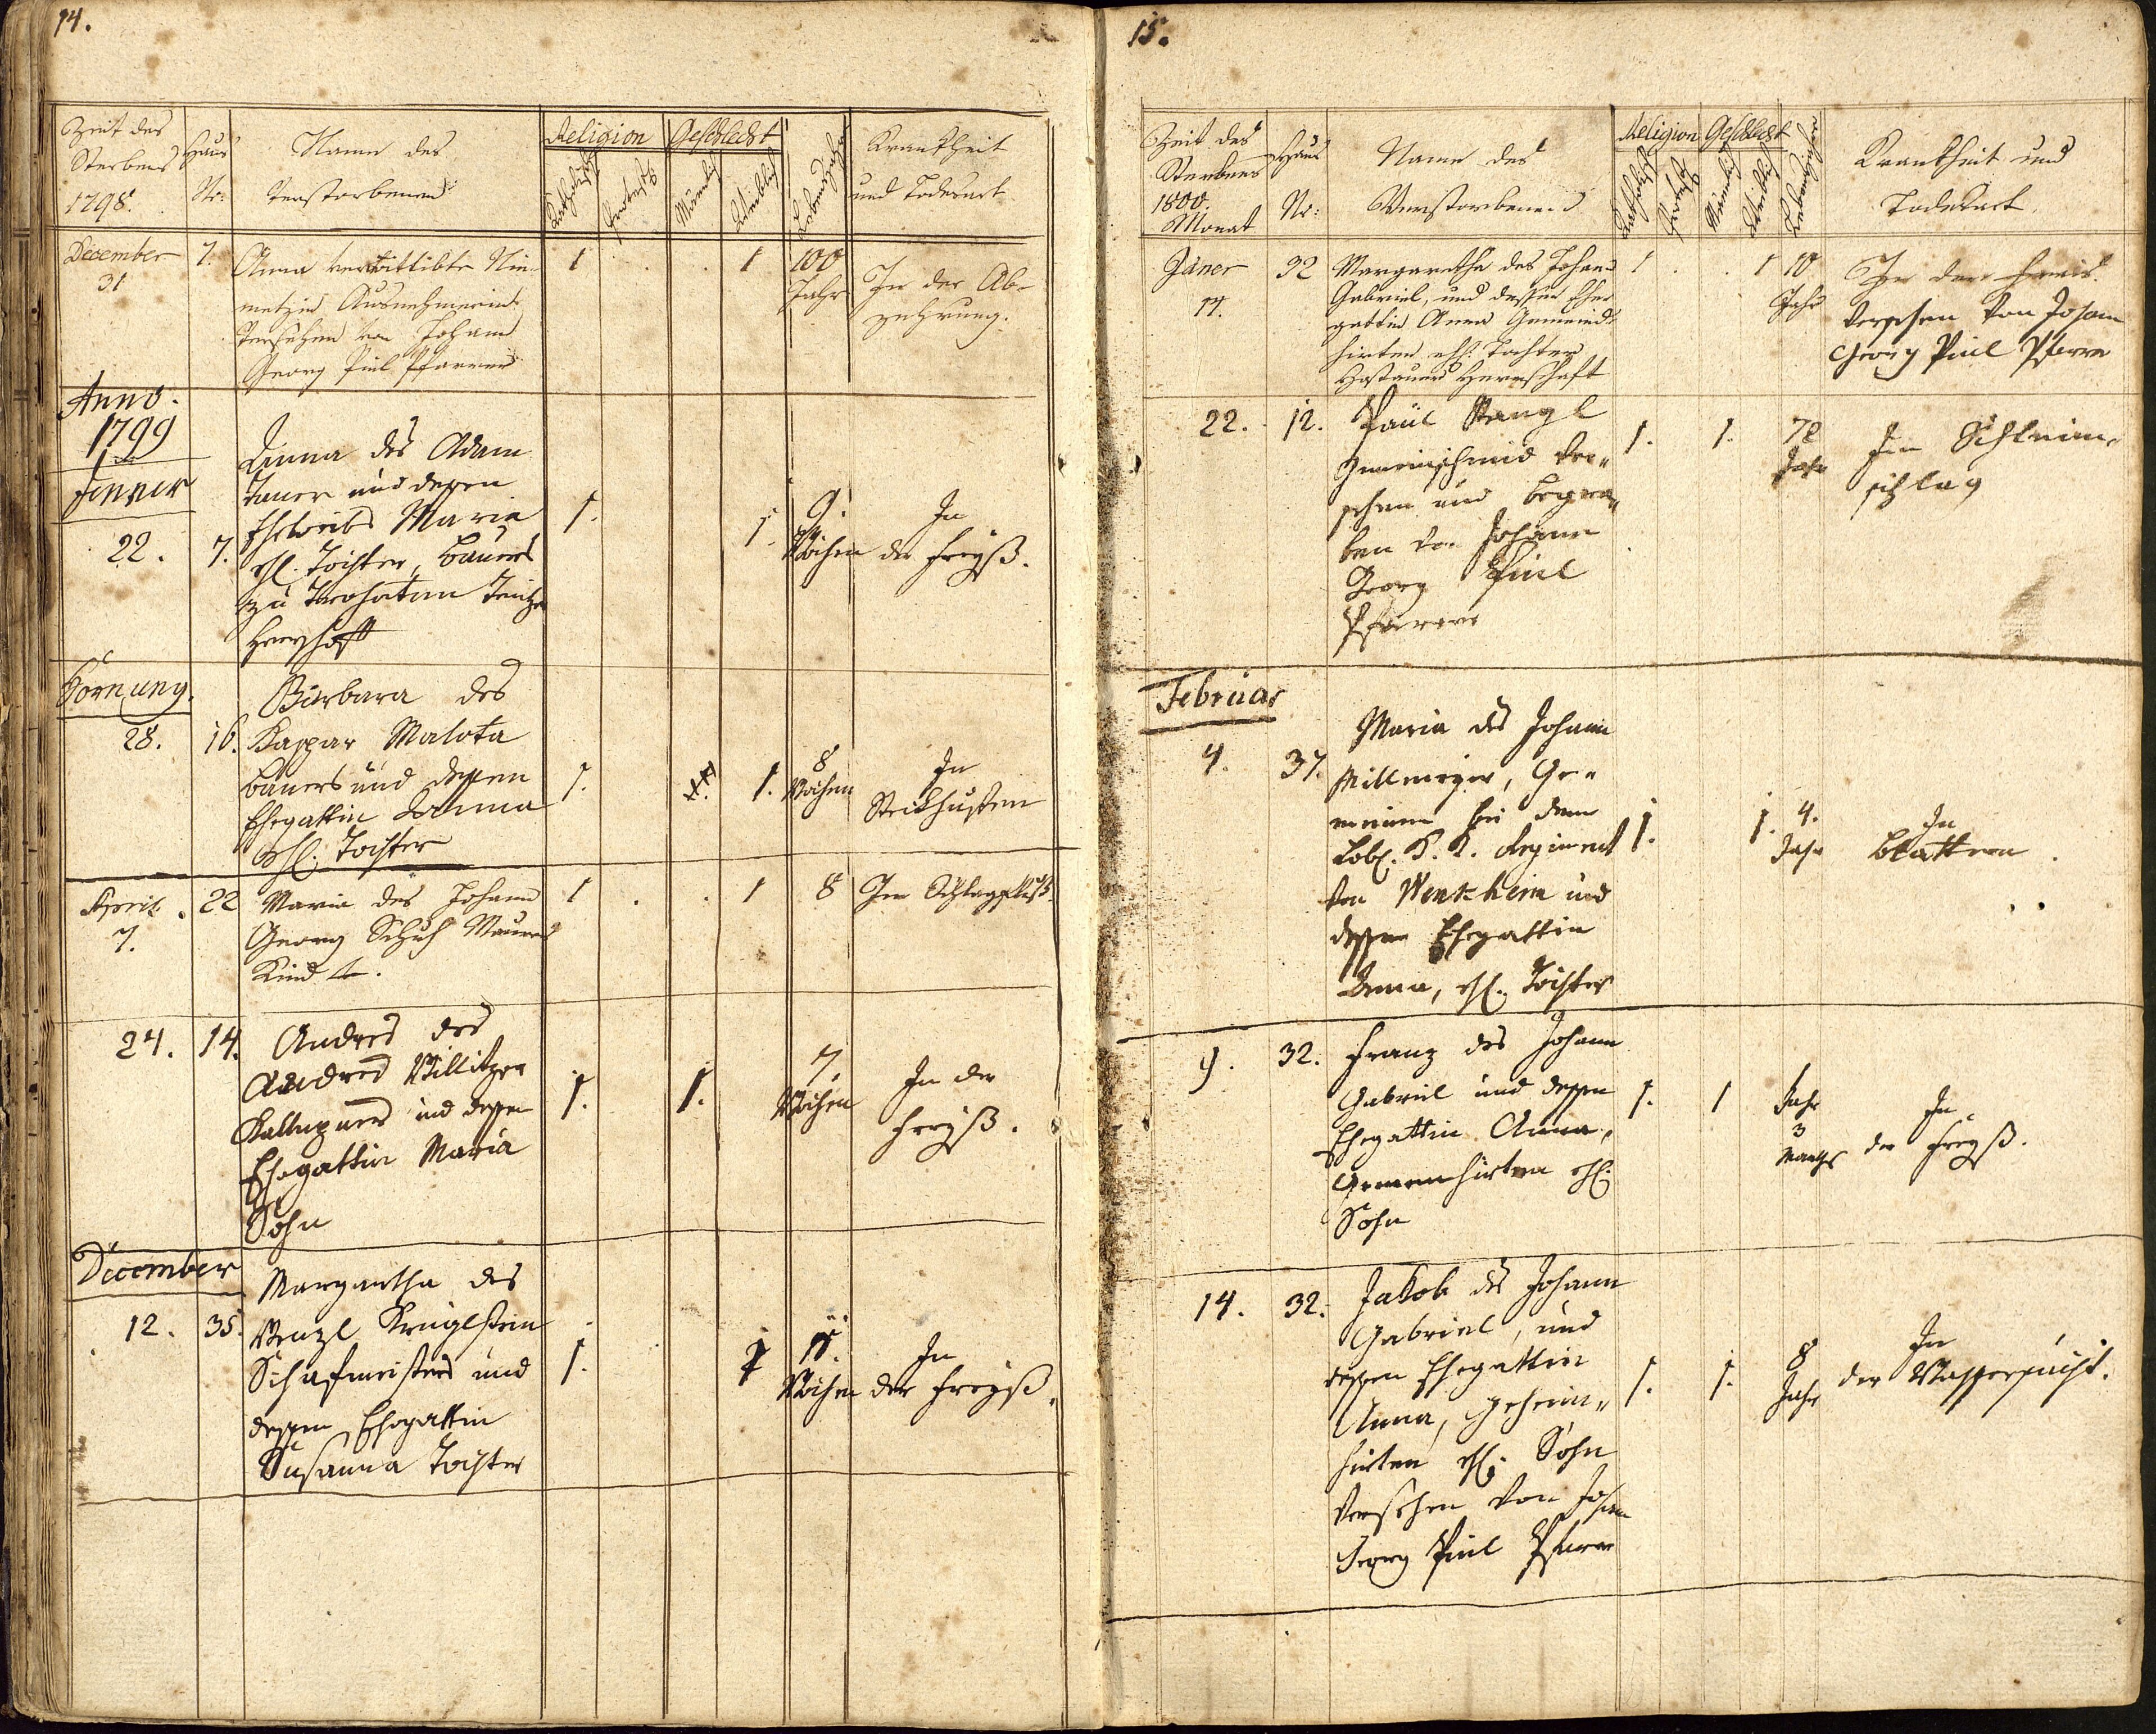 14.
Zeit des
Sterbens
1798.
Haus
Nr:
Name des
Verstorbenen
Religion
Katholisch
Protest.
Geschlecht
Mänlich
Weiblich
Lebensjahre
Krankheit
und Todesart
December
31
7.
Anna verwittibte Nie-
metzin Ausnehmerin
versehen von Johann
Georg Piel Pfarrer
1
1
100
Jahr
In der Ab-
zehrung.
Anno.
1799
Jenner
22.
7.
Anna des Adam
und dessen
Eheweibs Maria
ehl. Tochter, Bauers
zu
Herrschaft
1.
1.
9.
Wochen
In
der Freyß.
Hornung.
28.
16.
Barbara des
Kaspar Malota
Bauers und dessen
Ehegattin Anna
ehl. Tochter
1.
1.
8
Wochen
In
Stickhusten
April.
7.
22
Maria des Johann
Georg Schuh Maurers
Kind
1
1
8
Im Schlagfluß.
24.
14.
Andres des
Andres Willitzer
und dessen
Ehegattin Maria
Sohn
1.
1.
7.
Wochen
In der
Freyß.
December
12.
35.
Margaretha des
Wenzl Krüglstein
Schafmeisters und
dessen Ehegattin
Susanna Tochter
1.
1
11.
Wochen
In
der Freyß.
15.
Zeit des
Sterbens
1800.
Monat
Haus
Nr:
Name des
Verstorbenen
Religion
Katholisch
Protest
Geschlecht
Mänlich
Weiblich
Lebensjahre
Krankheit und
Todesart.
Jäner
14.
32
Margaretha des Johann
Gabriel, und dessen Ehe-
gattin Anna Gemeind-
hirten ehl. Tochter
Hostauer Herrschaft
1
1
10
Jahr
In der Freis.
Versehen von Johann
Georg Piel Pfarrer
22.
12.
Paul Stangl
Gemeinschmid ver-
sehen und begra-
ben von Johann
Georg Piel
Pfarrer
1.
1.
72
Jahr
Im Schleim-
schlag
Februar
4.
37.
Maria des Johann
Millmeyer, Ge-
meinen bei dem
Lobl. K. K. Regiment
von Wenkheim und
dessen Ehegattin
Anna, ehl. Tochter
1.
1.
4.
Jahr
In
Blattern.
9.
32.
Franz des Johann
Gabriel und dessen
Ehegattin Anna,
Gemeinhirten ehl.
Sohn
1.
1
Jahr
3
In
der Freyß.
14.
32.
Jakob des Johann
Gabriel, und
dessen Ehegattin
Anna, Gehein-
hirten ehl. Sohn
versehen von Johann
Georg Piel Pfarrer
1.
1.
8
Jahr
In
der Wassersucht.